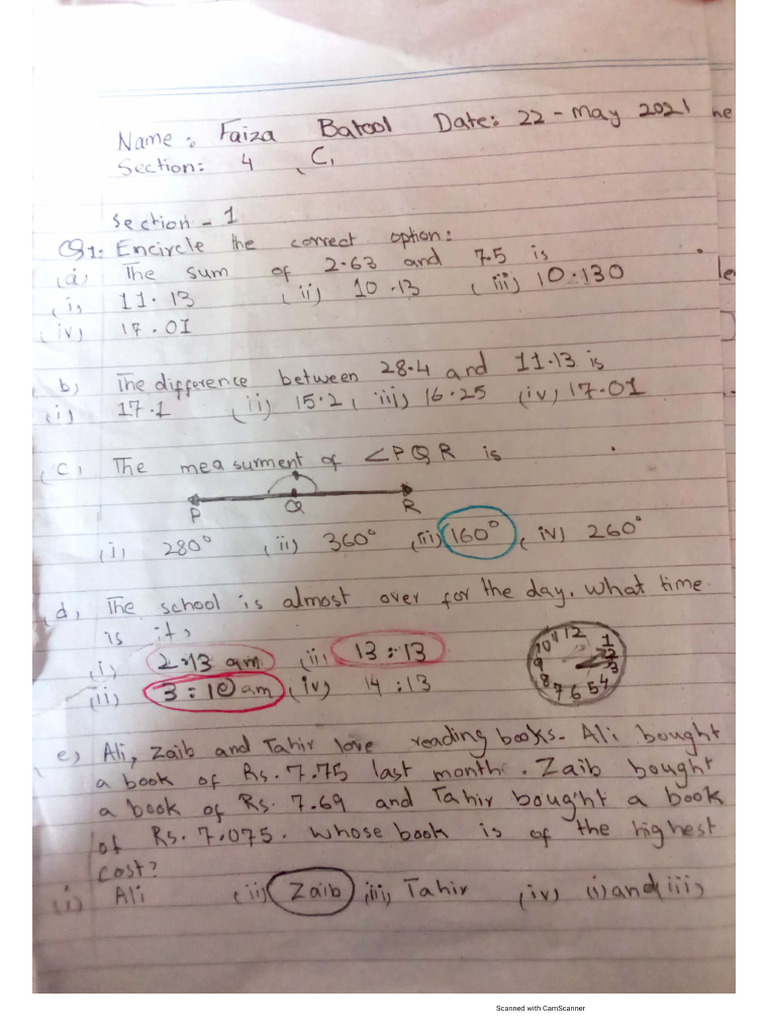 Name: Faiza Batool Date: 22-May 2021 he
Section: 4 (C,
Section - 1
Q1: Encircle the correct option:
(a) The sum of 2.63 and 7.5 is
(i, 11.13 (ii) 10.13 (iii) 10.130 le
(iv) 17.01
b) The difference between 28.4 and 11.13 is
(i) 17.1 (ii) 15.2, iii) 16.25 (iv) 17.01
(C, The measurment of ∠PQR is
P Q R
(i) 280° (ii) 360° (iii) 160° (iv) 260°
(d, The school is almost over for the day. What time
is it,
(i) 2:13 am (ii, 13:13
(ii) 3:10 am (iv) 14:13
10 11 12 1 2 3 4 5 6 7 8 9
e) Ali, Zaib and Tahir love reading books. Ali bought
a book of Rs. 7.75 last monthe. Zaib bought
a book of Rs. 7.69 and Tahir bought a book
of Rs. 7.075. Whose book is of the highest
cost?
(i) Ali (ii) Zaib iii, Tahir (iv, (i) and (iii,
Scanned with CamScanner